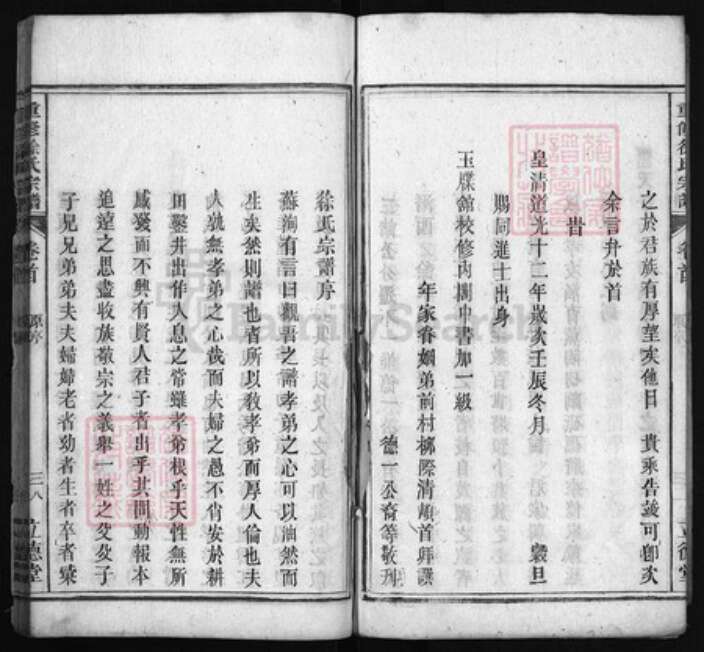 重修徐氏宗譜
卷首
原序
立德堂
之於君族有厚望矣他日 貴乘告竣可卽以
余言弁於首
旹
皇清道光十二年歲次壬辰冬月 穀旦
賜同進士出身
玉牒館校修內閣中書加一級
年家眷姻弟前村柳際清頓首拜譔
德一公裔等敬刋
徐氏宗譜序
蘇洵有言曰觀吾之譜孝弟之心可以油然而
生矣然則譜也者所以敎孝弟而厚人倫也夫
人孰無孝弟之心哉而夫婦之愚不肖安於耕
田鑿井出作入息之常雖孝弟根乎天性無所
感發而不興有賢人君子者出乎其間動報本
追遠之思盡收族敬宗之義舉一姓之父父子
子兄兄弟弟夫夫婦婦老者幼者生者卒者寮
重修徐氏宗譜
卷首
原序
三八
立德堂
FamilySearch